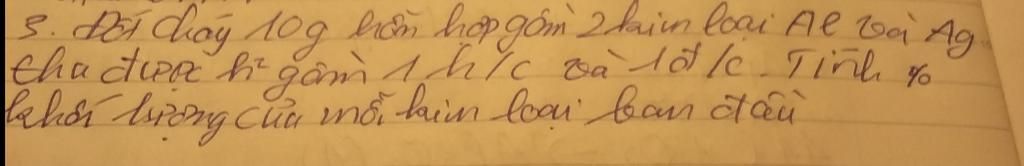 3. Đốt cháy 10g hỗn hợp gồm 2 kim loại Al và Ag
thu được h² gồm 1 h/c và 1đ/c. Tính %
khối lượng của mỗi kim loại ban đầu